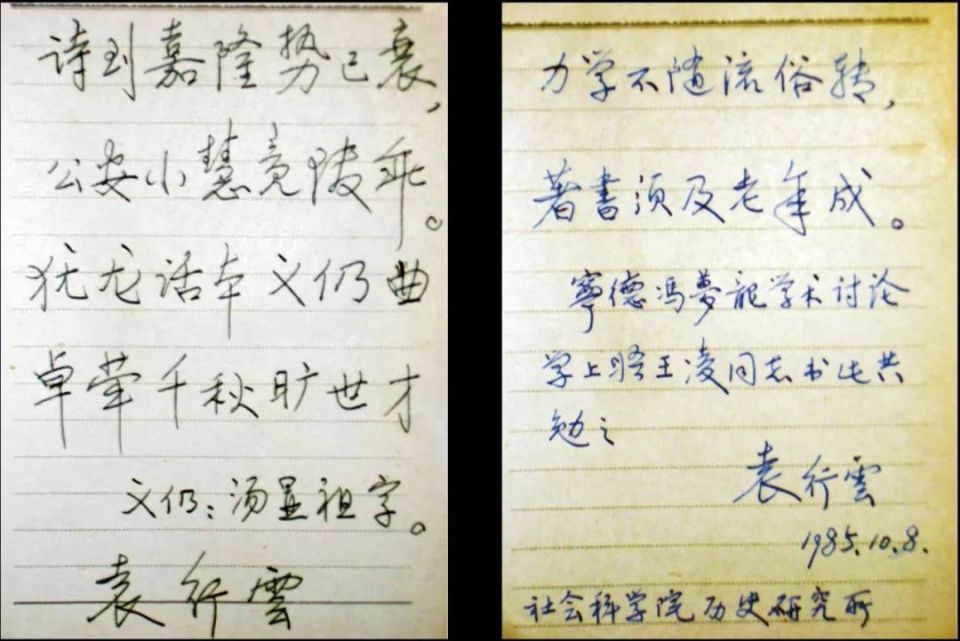 诗到嘉隆势已衰，
公安小慧竟陵乖。
犹龙话本义仍曲
卓荦千秋旷世才
义仍：汤显祖字。
袁行雲
力学不随流俗转，
著书须及老年成。
寧德冯夢龍学术讨论
学上晤王凌同志书此共
勉之
袁行雲
1985.10.8.
社会科学院历史研究所